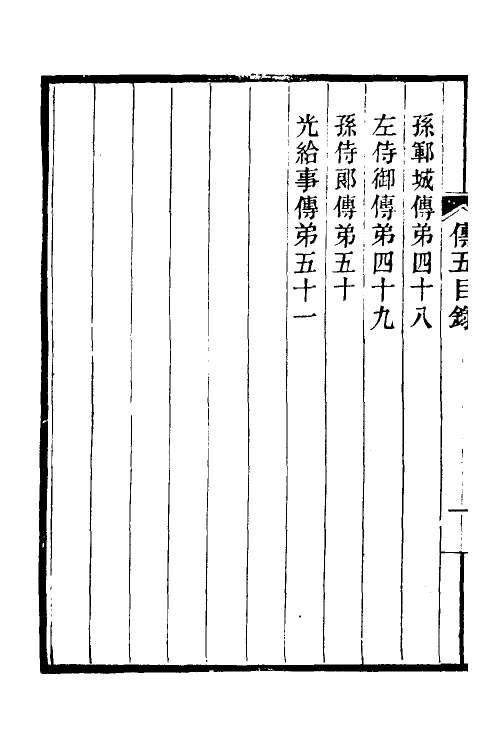 傳五目錄
一
孫鄆城傳弟四十八
左侍御傳弟四十九
孫侍郎傳弟五十
光給事傳弟五十一